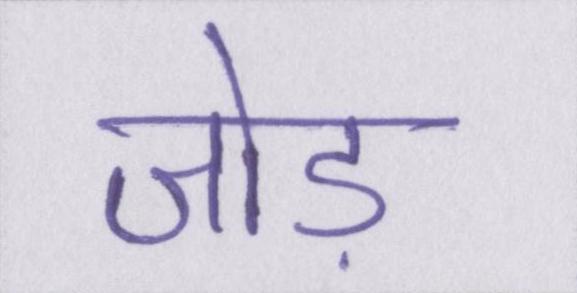 जोड़